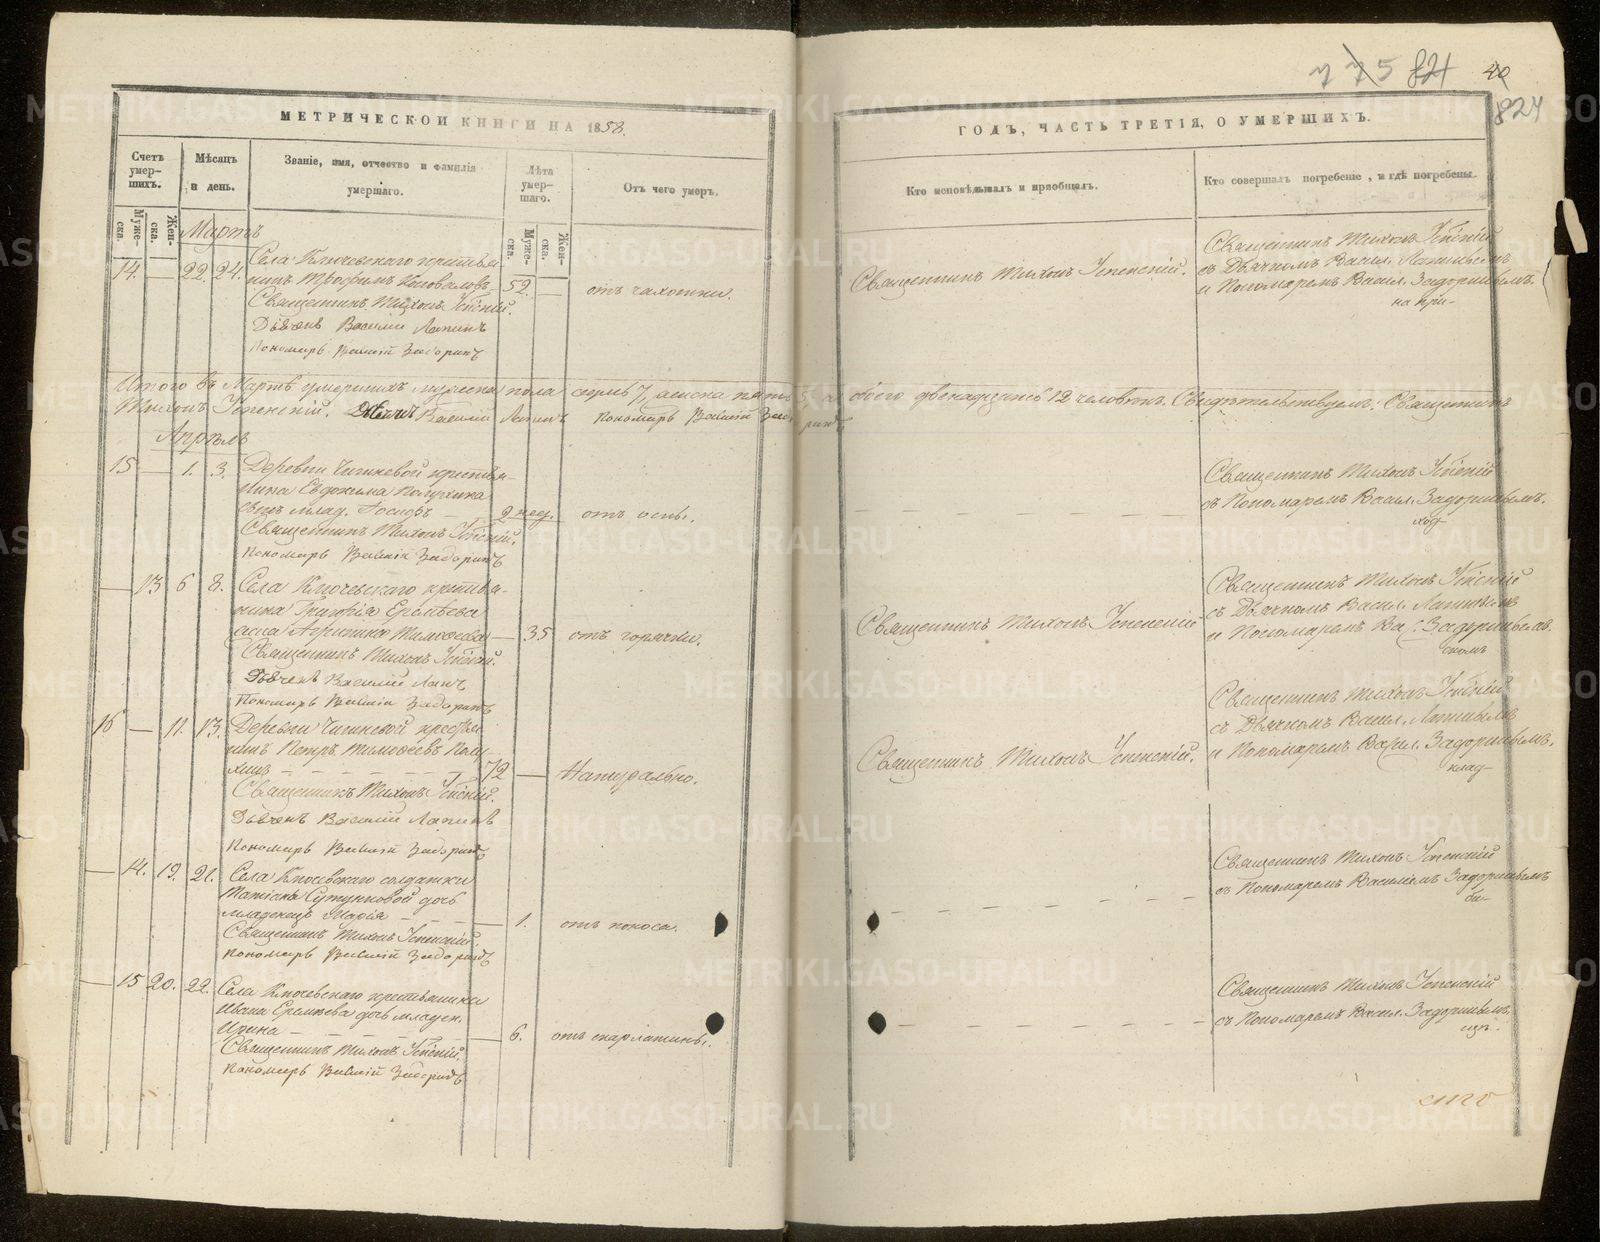 775 824 40
824
МЕТРИЧЕСКОЙ КНИГИ НА 1858.
Счетъ умер- шихъ.
Муже- ска.
Жен- ска.
Мѣсяцъ и день.
Званіе, имя, отчество и фамилія умершаго.
Лѣта умер- шаго.
Муже- ска.
Жен- ска.
Отъ чего умеръ.
ГОДЪ, ЧАСТЬ ТРЕТІЯ, О УМЕРШИХЪ.
Кто исповѣдывалъ и пріобщалъ.
Кто совершалъ погребеніе, и гдѣ погребены.
Мартъ
14. — 22. 24.
Села Ключевскаго крестья-
нинъ Трофимъ Коноваловъ
52 —
отъ чахотки.
Священникъ Тихонъ Успенскій.
Дьячекъ Василій Лапинъ
Пономарь Василій Задоринъ
Священникъ Тихонъ Успенскій.
Священникъ Тихонъ Успенскій
съ Дьячкомъ Васил. Лапинымъ
и Пономаремъ Васил. Задоринымъ.
на при-
Итого въ Мартѣ умершихъ мужеска пола семь 7, женска пять 5, а обоего двенадцать 12 человѣкъ. Свидѣтельствуемъ: Священникъ
Тихонъ Успенскій. Дьячекъ Василій Лапинъ Пономарь Василій Задоринъ
Апрѣль
15 — 1. 3.
Деревни Чигиневой крестья-
нина Евдокима Полухина
сынъ млад. Іосифъ
2 нед.
отъ оспы.
Священникъ Тихонъ Успенскій.
Пономарь Василій Задоринъ
Священникъ Тихонъ Успенскій
съ Пономаремъ Васил. Задоринымъ.
ход-
— 13 6 8.
Села Ключевскаго крестья-
нина Григорія Еремѣева
жена Агрипина Тимофеева
— 35
отъ горячки.
Священникъ Тихонъ Успенскій.
Дьячекъ Василій Лапинъ
Пономарь Василій Задоринъ
Священникъ Тихонъ Успенскій
Священникъ Тихонъ Успенскій
съ Дьячкомъ Васил. Лапинымъ
и Пономаремъ Вас. Задоринымъ.
скомъ
16 — 11. 13.
Деревни Чигиневой крестья-
нинъ Петръ Тимофеевъ Полу-
хинъ
72 —
Натурально.
Священникъ Тихонъ Успенскій.
Дьячекъ Василій Лапинъ
Пономарь Василій Задоринъ
Священникъ Тихонъ Успенскій.
Священникъ Тихонъ Успенскій
съ Дьячкомъ Васил. Лапинымъ
и Пономаремъ Васил. Задоринымъ.
клад-
— 14. 19. 21.
Села Ключевскаго солдатки
Татіаны Сутунковой дочь
младенецъ Марія
— 1.
отъ поноса.
Священникъ Тихонъ Успенскій.
Пономарь Василій Задоринъ
Священникъ Тихонъ Успенскій
съ Пономаремъ Василіемъ Задоринымъ
би-
— 15 20. 22.
Села Ключевскаго крестьянина
Ивана Еремѣева дочь младен.
Ирина
— 6.
отъ скарлатины.
Священникъ Тихонъ Успенскій.
Пономарь Василій Задоринъ
Священникъ Тихонъ Успенскій
съ Пономаремъ Васил. Задоринымъ.
щѣ.
METRIKI.GASO-URAL.RU